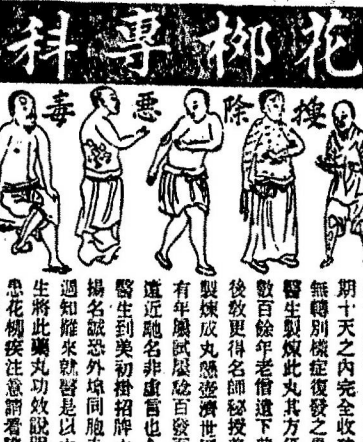 花栁專科
搜除惡毒
期十天之內完全收
無轉別樣症復發之
醫生製煉此丸其方
數百餘年老僧遺下
後敎更得名師秘授
製煉成丸懸壺濟世
有年屢試屢騐百發
遠近馳名非虛言也
醫生到美初掛招牌
揚名誠恐外埠同胞
週知難來就醫是以
生將此藥丸功效說
患花柳疾注意請看